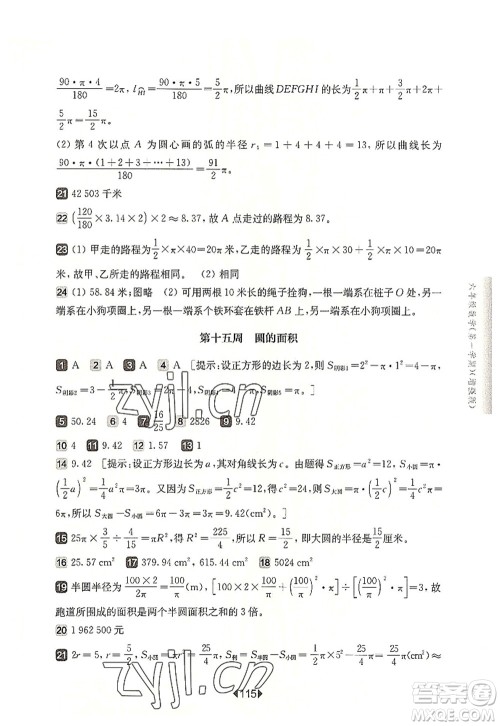 90·π·4/180=2π, l=90·π·5/180=5/2π,所以曲线DEFGHI的长为1/2π+π+3/2π+2π+
5/2π=15/2π.
(2) 第4次以点A为圆心画的弧的半径r₁=1+4+4+4=13,所以曲线的长为
90·π·(1+2+3+…+13)/180=91/2π.
21 42 503千米
22 (120/180×3.14×2)×2≈8.37,故A点走过的路程为8.37.
23 (1) 甲走的路程为1/2×π×40=20π米,乙走的路程为1/2×π×10+1/2×π×30=20π
米,故甲、乙所走的路程相同. (2) 相同
24 (1) 58.84米;图略 (2) 可用两根等长的绳子拴狗,一根一端系在桩子O处,另一
端系在小狗项圈上,另一根一端系个铁环套在铁杆AB上,另一端系在小狗项圈上.
第十五周 圆的面积
1 A 2 A 3 A 4 A [提示:设正方形的边长为2,则S阴影1=2²-π·1²=4-π,
S阴影2=4-π,S阴影3=4-π,S阴影4=4-1/2π.]
5 50.24 6 2.4 7 16/25 8 2826 9 9.42
10 4 11 9.42 12 4 13 1
14 9.42 [提示:设正方形边长为a,其对角线长为c. 由题得S正方形=a²,S小圆=π·
(1/2a)²=1/4a²π=3π. 又因为S正方形=1/2c²=12,所以S大圆=π·(1/2c)²=1/4c²π=
6π,所以S大圆-S小圆=6π-3π=3π=9.42(cm²).]
15 25π×3/5÷4/15=πR²,R²=225/4,所以R=15/2,故大圆的半径是15/2厘米.
16 25.57 cm² 17 379.94 cm²,615.44 cm² 18 2 cm²
19 半圆半径为100×2/2π=100/π(m),[100×2×100/π+(100/π)²·π]÷[(100/π)²·π]=3,故
跑道所围成的面积是两个半圆面积之和的3倍.
20 1 962 500元
21 2r=5,r=5/2,S小圆=π·r²=25/4π,S=S小圆=25/4π,S=1/2π×5²-25/4π=25/4π(cm²)≈
六年级数学(第一学期)(增强版)
115
zyjl.cn
答案圈
MXQE.COM